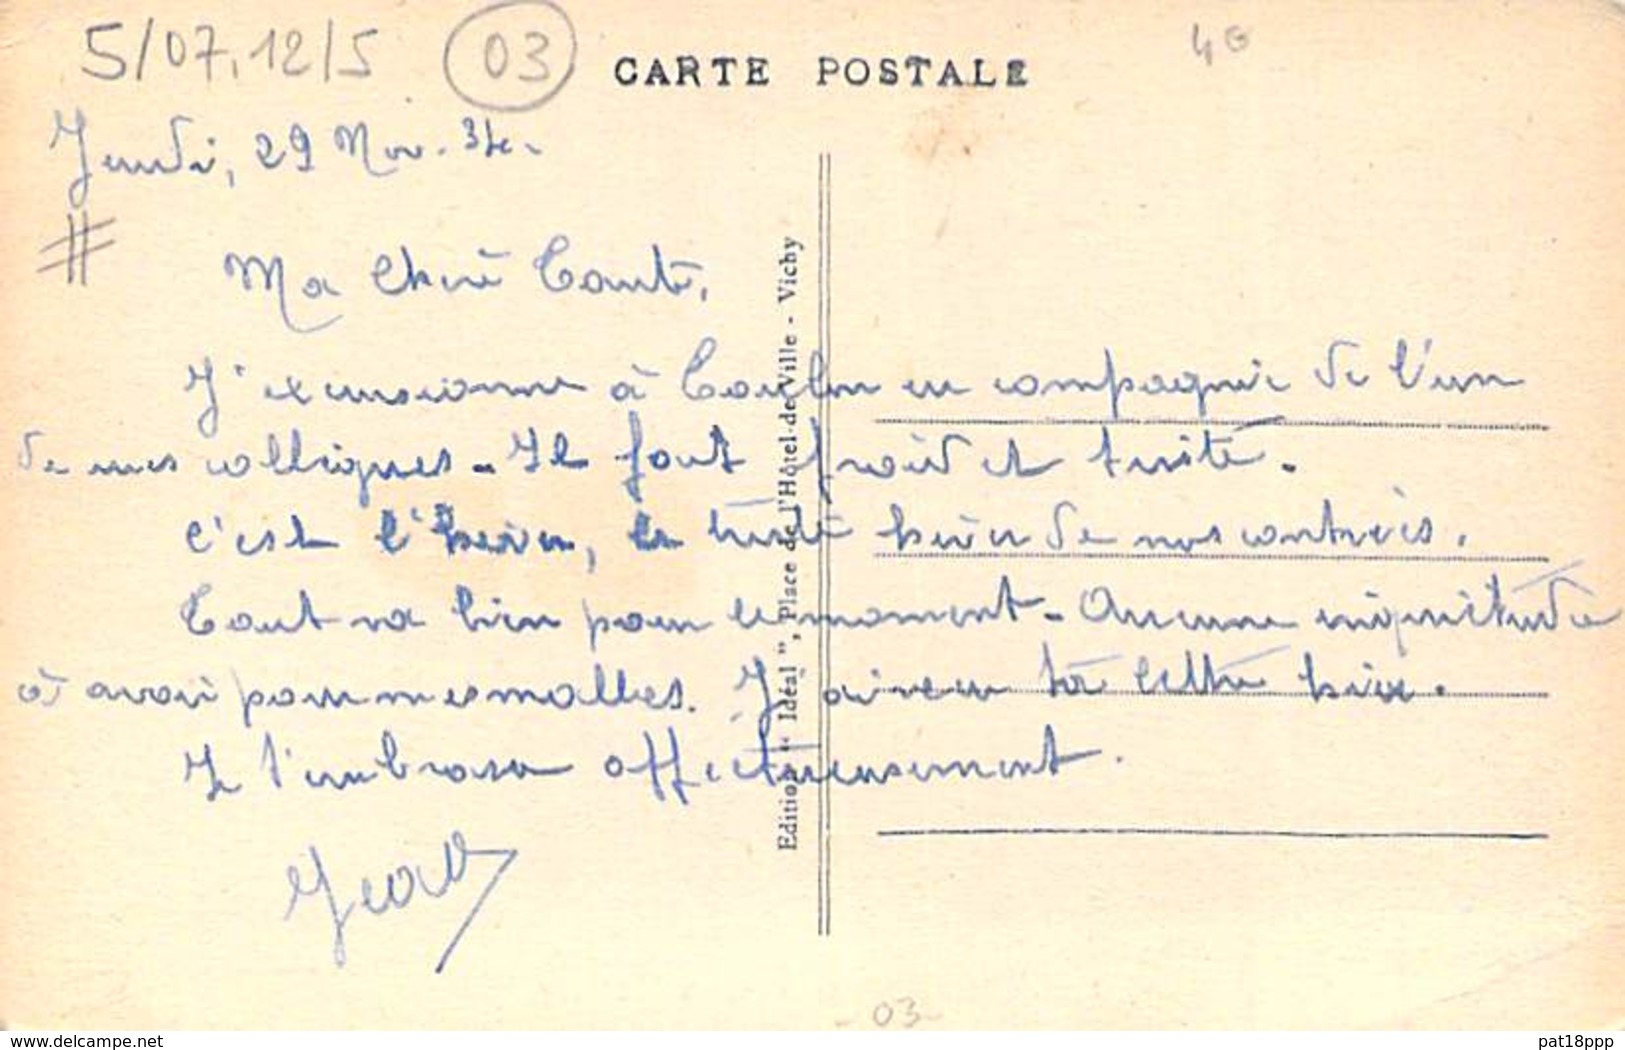 5/07.12/5
03
CARTE POSTALE
40
Jeudi, 29 Nov. 34.
Ma Chère Tante,
J'excursionne à Toulon en compagnie de l'un
de mes collègues - Il fait froid et triste.
C'est l'hiver, le triste hiver de nos contrées.
Tout va bien pour le moment - Aucune inquiétude
à avoir pour mes malles. J'ai reçu ta lettre hier.
Je t'embrasse affectueusement.
Jean
Edition " Idéal ", Place de l'Hôtel-de-Ville - Vichy
03
delcampe.net
pat18ppp